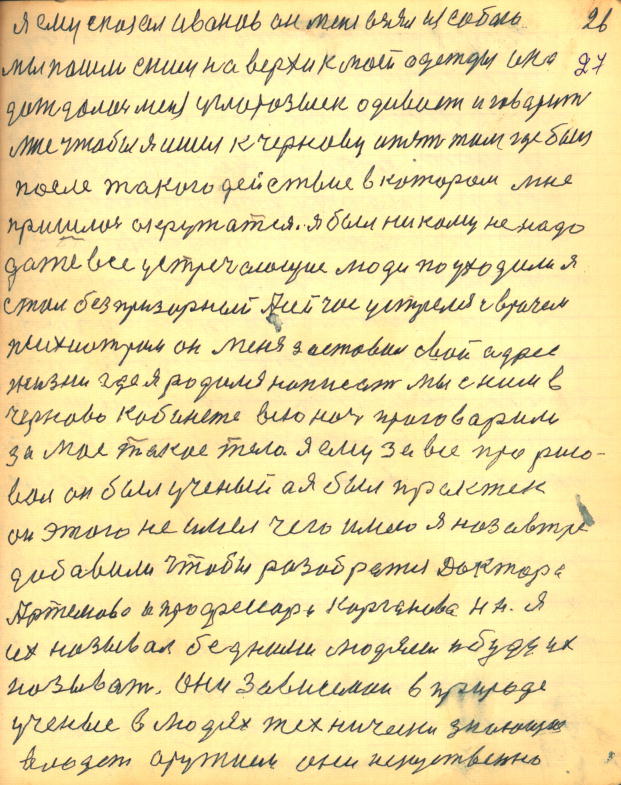 я ему сказал иванов он меня взял и с собою 26
мы пошли с ним на верхи к моей одежды она 27
дождалася меня одиват и говарит
мне чтобы я ишел к чернову опят там где был
после такого действие в котором мне
пришлося окружатся. я был никому не надо
даже все устречающие люди поуходили я
стал безпризорный Сейчас устреля с врачем
психиотром он меня заставил свой адрес
жизни где я родился написат мы с ним в
черново кабинете всю ноч проговарили
за мое такое тело я ему за все про рисо-
вал он был ученый а я был практек
он этого не имел чего имею я на завтре
добавили чтобы разобратся Доктора
Артемово и профессора Корганова н н. я
их называл бедными людями и буду их
называт. они зависемы в природе
ученые в людях технически знающие
владет оружием они искуственно